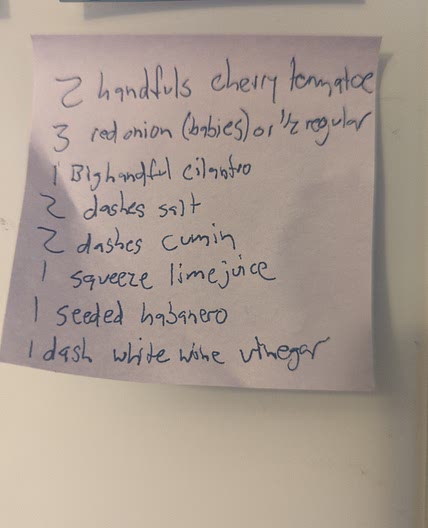 2 handfuls cherry tommatoe
3 red onion (babies) or 1/2 regular
1 Big handful cilantro
2 dashes salt
2 dashes cumin
1 squeeze lime juice
1 seeded habanero
1 dash white wine vinegar